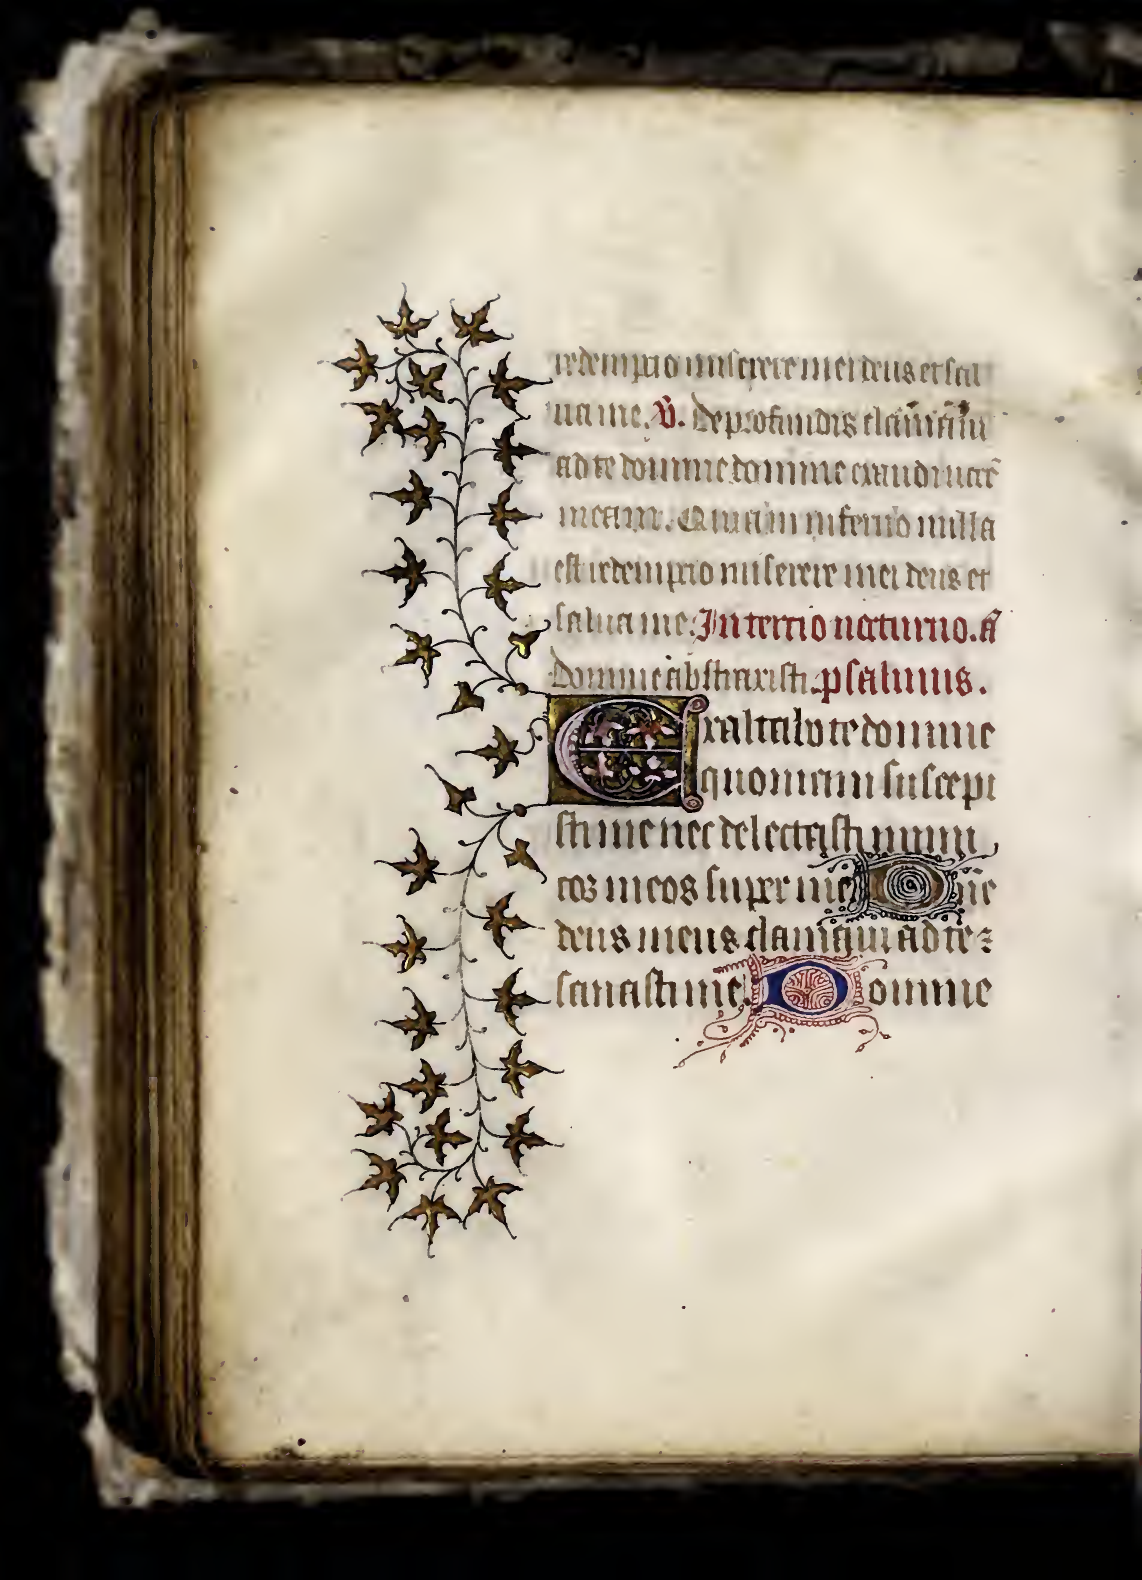 redempcio miserere mei deus et sal
ua me. V̄. De profundis clamaui
ad te domine domine exaudi uocē
meam. Quia in inferno nulla
est redempcio miserere mei deus et
salua me. In tercio nocturno. a
Domine abstraxisti. psalmus.
Exaltabo te domine
quoniam suscepi
sti me nec delectasti inimi
cos meos super me. Dn̄e
deus meus clamaui ad te ⁊
sanasti me. Domine